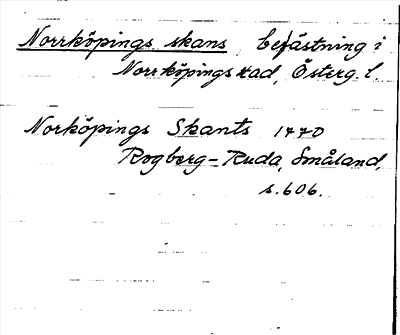 Norrköpings skans, befästning i
Norrköpings stad, Österg. l.
Norköpings Skants 1770
Rogberg-Ruda, Småland,
s. 606.